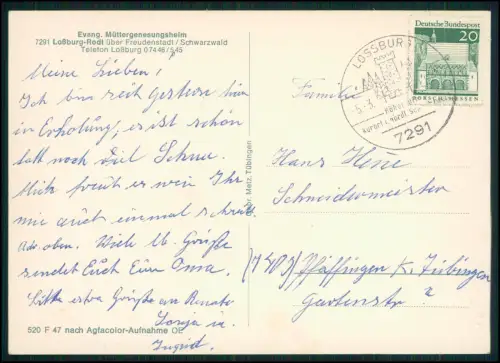 Evang. Müttergenesungsheim
7291 Loßburg-Rodt über Freudenstadt / Schwarzwald
Telefon Loßburg 07446 / 545
Meine Lieben!
Ich bin seit gestern hier
in Erholung, es ist schön
hat noch viel Schnee.
Mich freut es wenn Ihr
mir auch einmal schreibt
Adr. oben. Viele lb. Grüße
sendet Euch Eure Oma.
Bitte extra Grüße an Renate
Sonja u.
Ingrid.
520 F 47 nach Agfacolor-Aufnahme OE
Metz, Tübingen
Deutsche Bundespost
20
LOSSBURG
7291
Familie
Hans Hene
Schneidermeister
(7403) Pfäffingen K. Tübingen
Gartenstr. 2